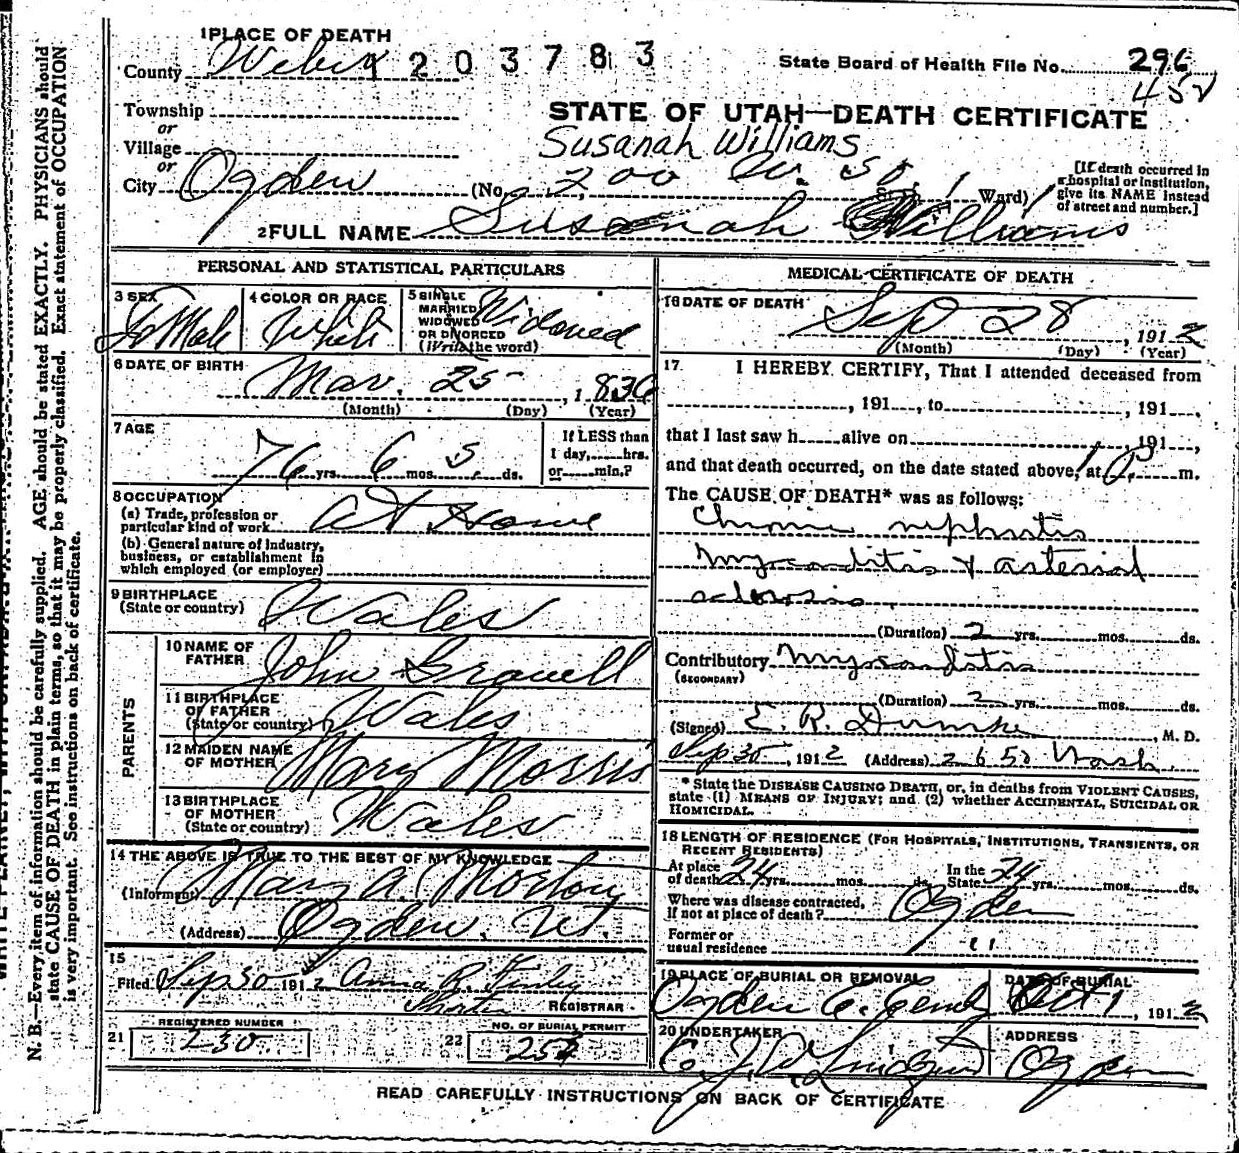 1 PLACE OF DEATH
County Weber 1203783
State Board of Health File No. 296
452
Township
or
Village
or
City Ogden
STATE OF UTAH—DEATH CERTIFICATE
Susanah Williams
(No. 200 W. So. St. Ward)
[If death occurred in a hospital or institution, give its NAME instead of street and number.]
2 FULL NAME Susanah Williams
PERSONAL AND STATISTICAL PARTICULARS
3 SEX FeMale
4 COLOR OR RACE White
5 SINGLE MARRIED WIDOWED OR DIVORCED (Write the word) Widowed
6 DATE OF BIRTH Mar. 25, 1836
(Month) (Day) (Year)
7 AGE
76 yrs. 6 mos. 5 ds.
If LESS than 1 day, hrs. or min.?
8 OCCUPATION
(a) Trade, profession or particular kind of work At Home
(b) General nature of Industry, business, or establishment in which employed (or employer)
9 BIRTHPLACE
(State or country) Wales
PARENTS
10 NAME OF FATHER John Gravell
11 BIRTHPLACE OF FATHER (State or country) Wales
12 MAIDEN NAME OF MOTHER Mary Morris
13 BIRTHPLACE OF MOTHER (State or country) Wales
14 THE ABOVE IS TRUE TO THE BEST OF MY KNOWLEDGE
(Informant) Mary A. Morton
(Address) Ogden. Ut.
15
Filed Sep 30 1912 Anna R. Finley
REGISTRAR
21 REGISTERED NUMBER 230
22 NO. OF BURIAL PERMIT 254
MEDICAL CERTIFICATE OF DEATH
16 DATE OF DEATH
Sep 28, 1912
(Month) (Day) (Year)
17 I HEREBY CERTIFY, That I attended deceased from
, 191 , to , 191 ,
that I last saw h alive on , 191 ,
and that death occurred, on the date stated above, at m.
The CAUSE OF DEATH* was as follows:
Chronic nephritis
Myocarditis & arterial
sclerosis.
(Duration) 2 yrs. mos. ds.
Contributory Myocarditis
(SECONDARY)
(Duration) 2 yrs. mos. ds.
(Signed) E. R. Dumke, M. D.
Sep 30, 1912 (Address) 2650 Wash.
* State the DISEASE CAUSING DEATH, or, in deaths from VIOLENT CAUSES, state (1) MEANS OF INJURY; and (2) whether ACCIDENTAL, SUICIDAL OR HOMICIDAL.
18 LENGTH OF RESIDENCE (FOR HOSPITALS, INSTITUTIONS, TRANSIENTS, OR RECENT RESIDENTS)
At place of death 24 yrs. mos. ds. In the State 24 yrs. mos. ds.
Where was disease contracted, if not at place of death? Ogden
Former or usual residence " "
19 PLACE OF BURIAL OR REMOVAL Ogden C. Cem
DATE OF BURIAL Oct 1, 1912
20 UNDERTAKER C. J. A. Lindquist
ADDRESS Ogden
READ CAREFULLY INSTRUCTIONS ON BACK OF CERTIFICATE
N. B.—Every item of information should be carefully supplied. AGE should be stated EXACTLY. PHYSICIANS should
state CAUSE OF DEATH in plain terms, so that it may be properly classified. Exact statement of OCCUPATION
is very important. See instructions on back of certificate.